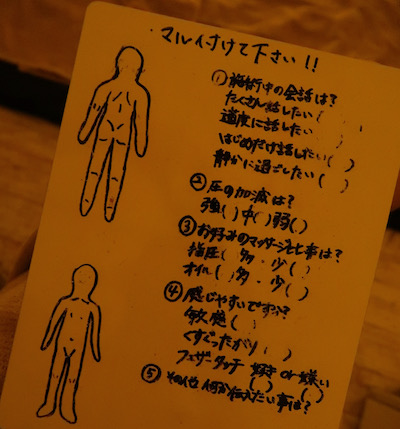 マル付けて下さい!!
① 施術中の会話は?
たくさん話したい( )
適度に話したい
はじめだけ話したい( )
静かに過ごしたい( )
② 圧の加減は?
強( )中( )弱( )
③ お好みのマッサージは?
指圧( )多・少( )
オイル( )多・少( )
④ 感じやすいですか?
敏感( )
くすぐったがり( )
フェザータッチ 好き or 嫌い
( ) ( )
⑤ その他何か伝えたい事は?